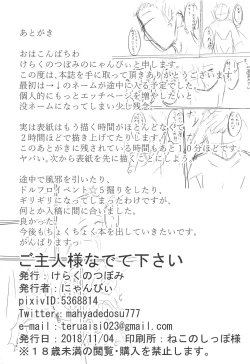 あとがき
おはこんばちわ
けらくのつぼみのにゃんぴぃと申します。
この度は、本誌を手に取って頂きありがとうございます
最初は→↓のネームが途中に入る予定でした
個人的にもっとエッチページを増やしたいと
没ネームになってしまい火し残念。
実は表紙はもう描く時間がほとんどなくて
2時間ほどで描き上げてたりします。
このあとがきに残されている時間もあと10分ほどです
ヤバい。次から表紙を先に描くことにしよう
途中で風邪を引いたり、
ドルフロイベント☆5掘りをしたり、
ギリギリになってしまったわけですが、
何とか入稿に間に合いました。
良かった!
今後もちょくちょく本を出していきたいです。
がんばりますっっ
ご主人様なでて下さい
発行:けらくのつぼみ
発行者:にゃんぴぃ
pixivID:5368814
Twitter: mahyadedosu777
e-mail:teruaisi023@gmail.com
発行日:2018/11/04 印刷所:ねこのしっぽ様
※18歳未満の閲覧・購入を禁止します。